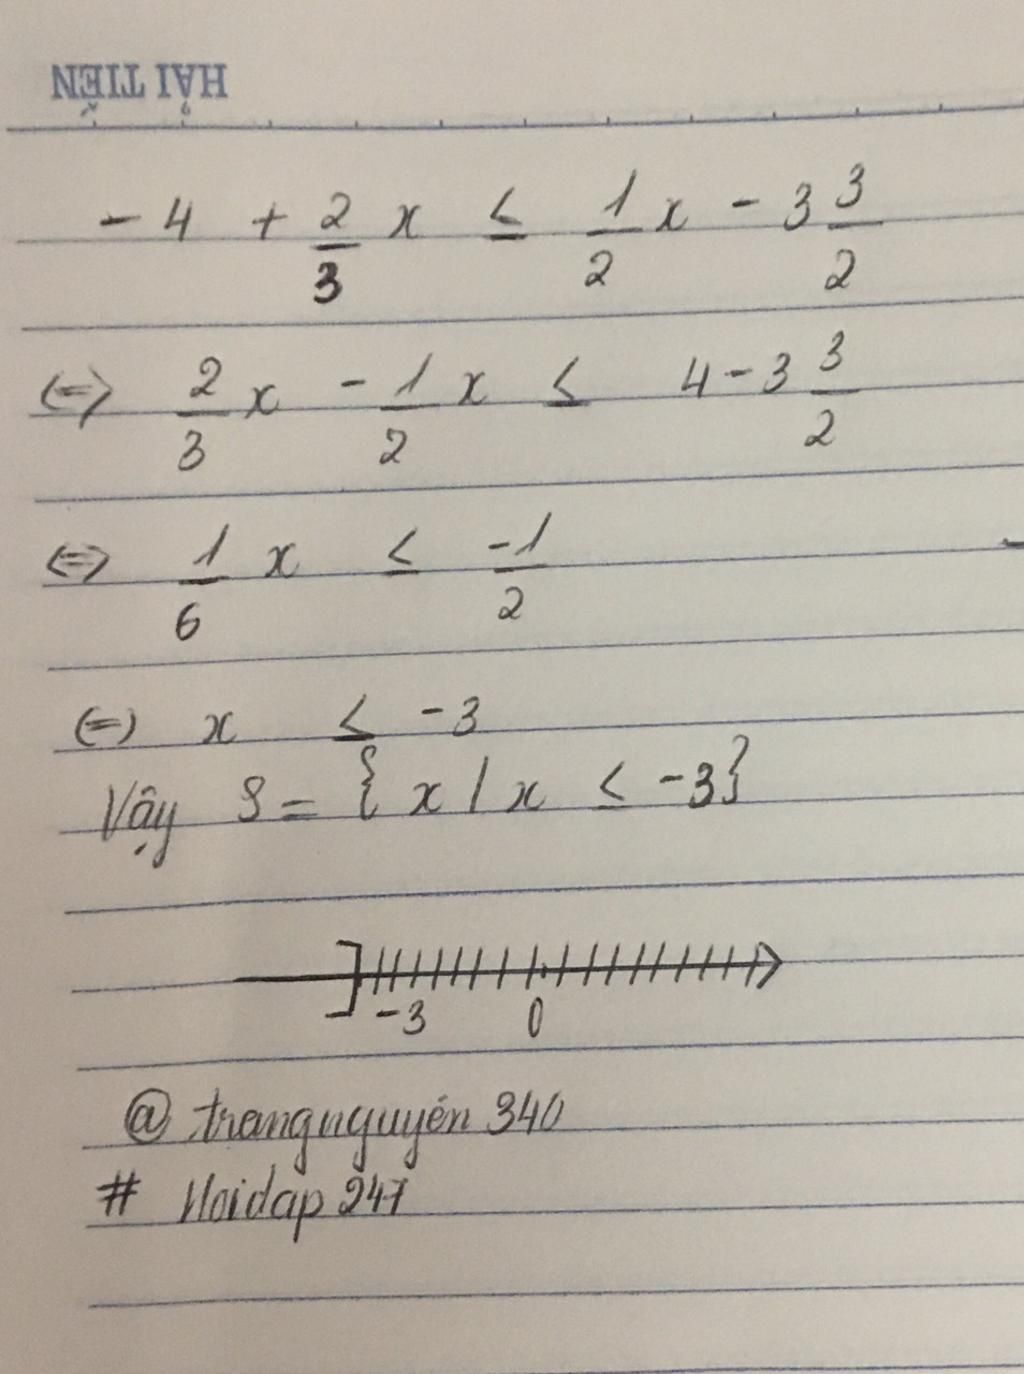 HẢI TIẾN
- 4 + 2/3 x ≤ 1/2 x - 3 3/2
(=) 2/3 x - 1/2 x ≤ 4 - 3 3/2
(=) 1/6 x ≤ -1/2
(=) x ≤ -3
Vậy S = { x / x ≤ -3}
-3 0
@ trangnguyên 340
# Hoidap 247